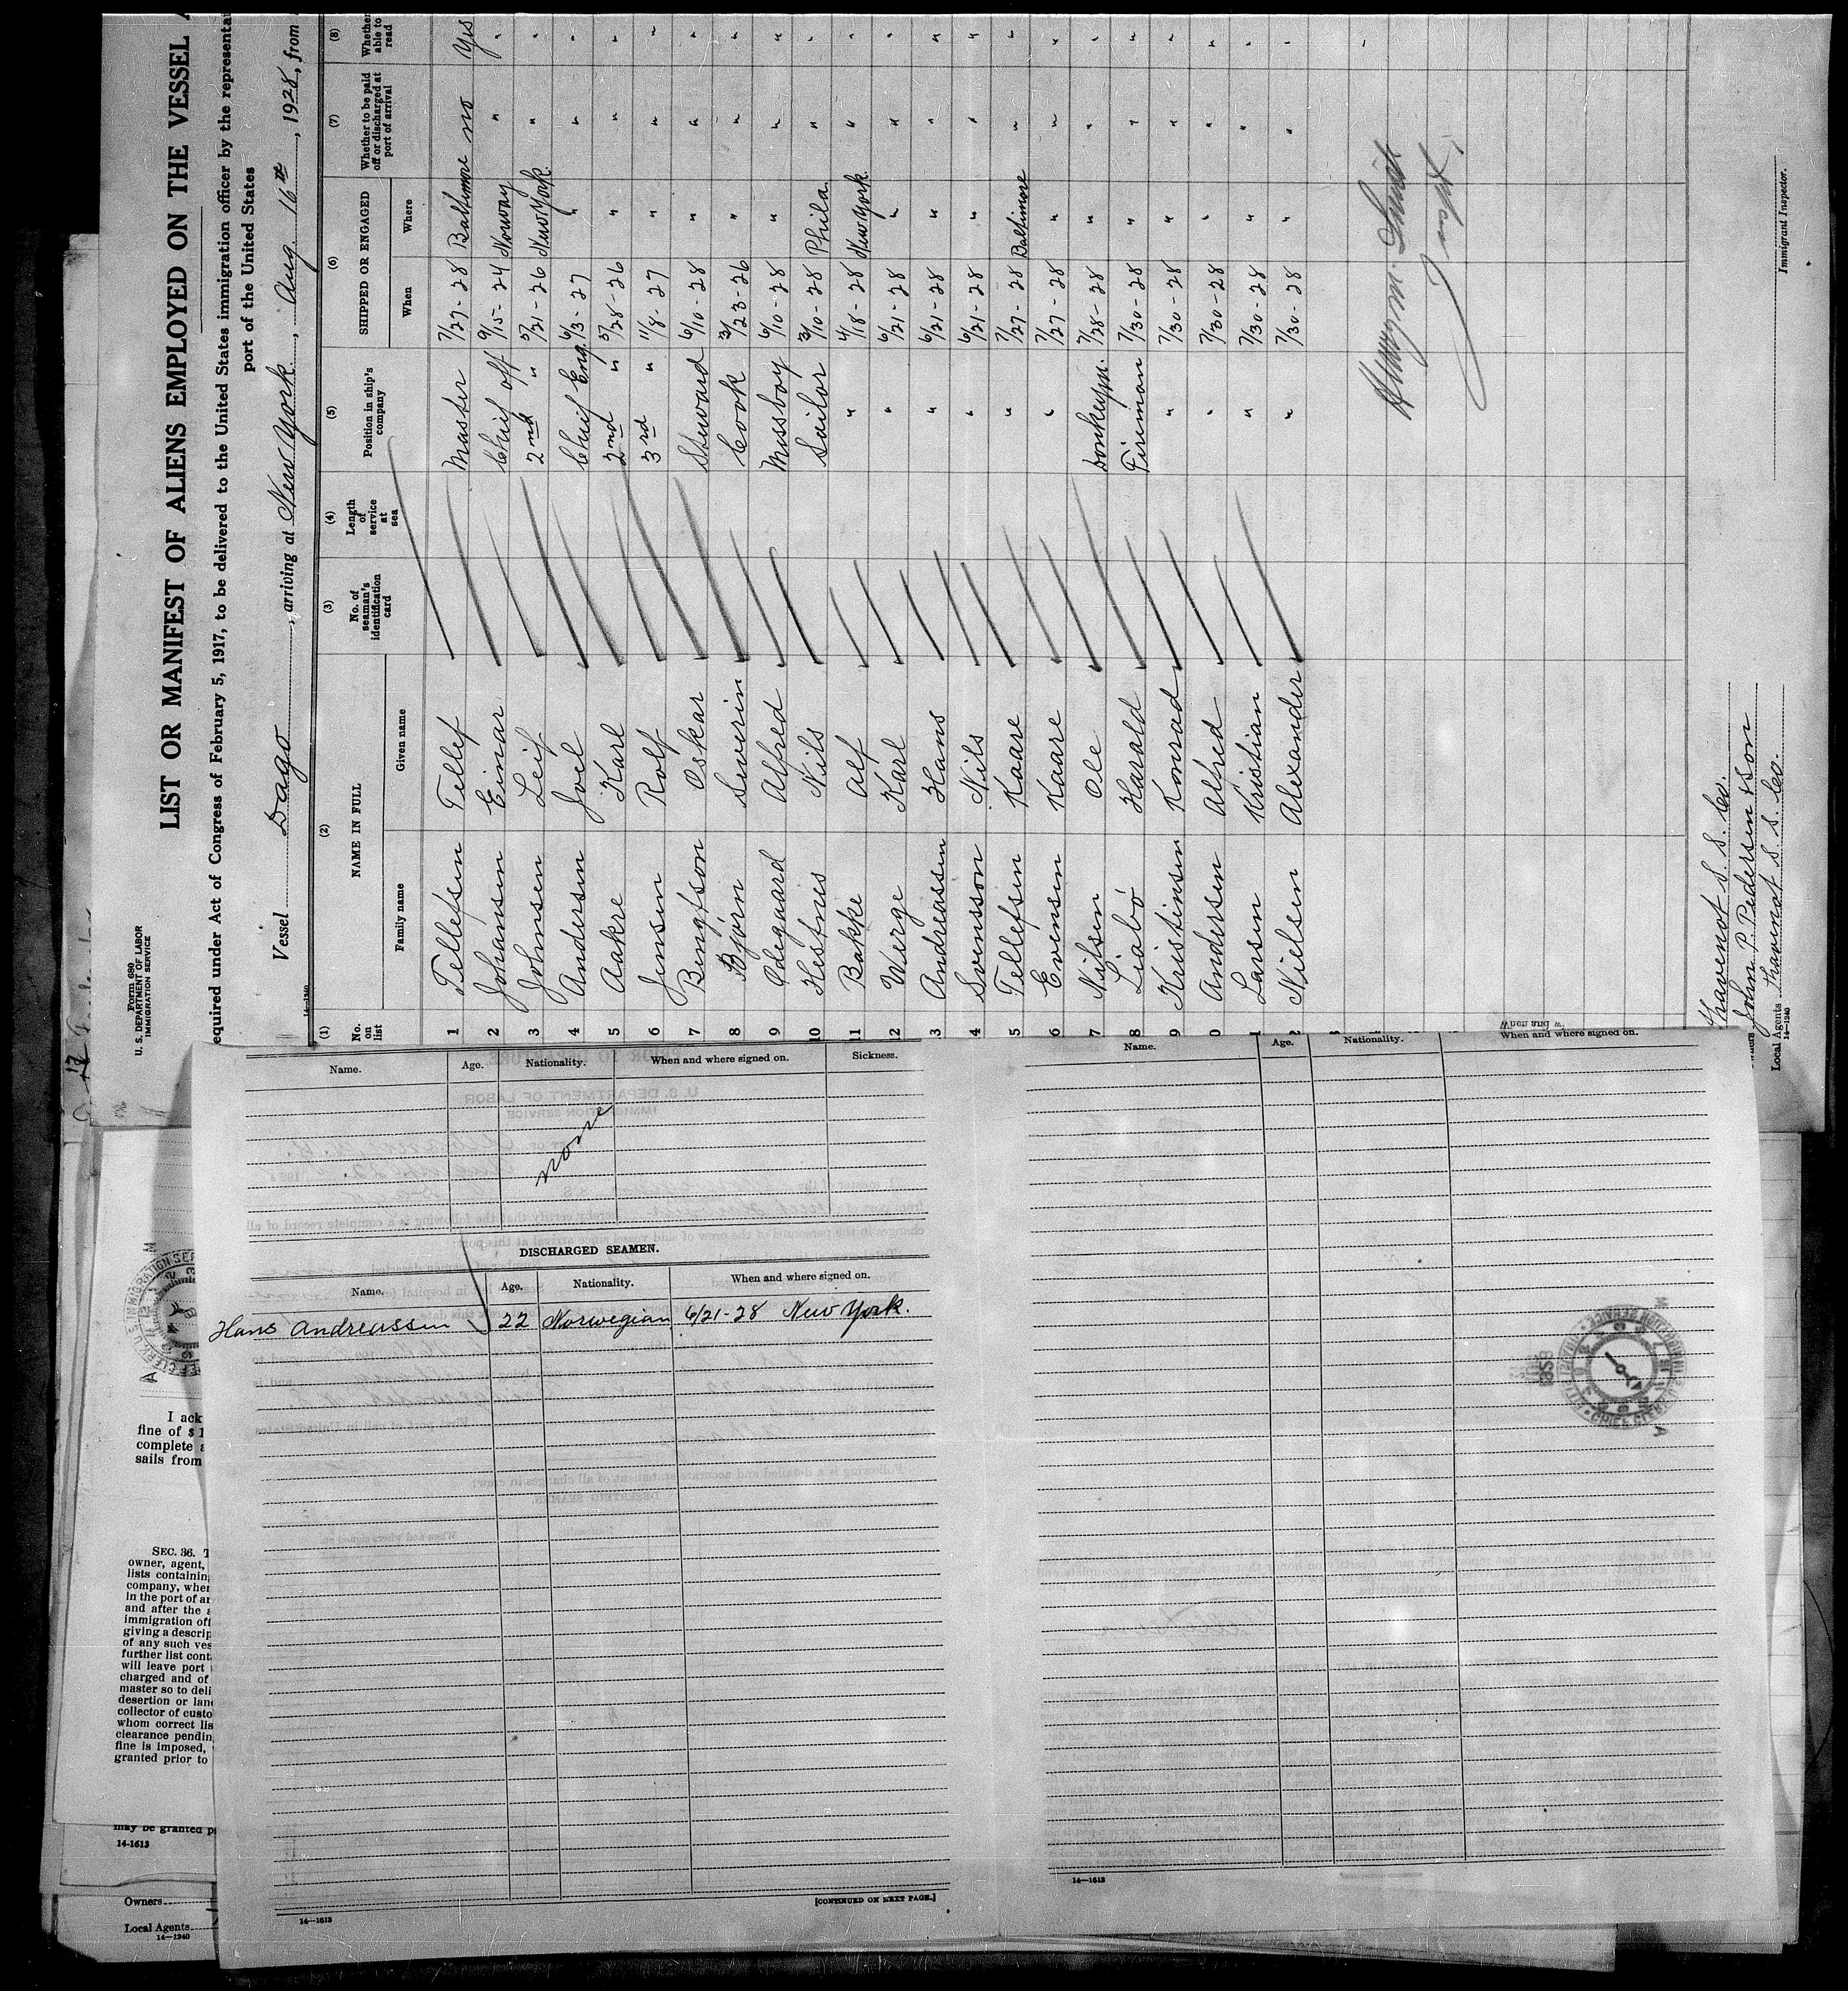 Form 680
U. S. DEPARTMENT OF LABOR
IMMIGRATION SERVICE
LIST OR MANIFEST OF ALIENS EMPLOYED ON THE VESSEL
equired under Act of Congress of February 5, 1917, to be delivered to the United States immigration officer by the representa
port of the United States
Vessel Dago, arriving at New York, Aug. 16th, 1928, from
14-1240
(1) (2) (3) (4) (5) (6) (7) (8)
No. on list NAME IN FULL No. of seaman's identification card Length of service at sea Position in ship's company SHIPPED OR ENGAGED Whether to be paid off or discharged at port of arrival Whether able to read
Family name Given name When Where
1 Tellefsen Tellef Master 7/27-28 Baltimore no Yes
2 Johansen Einar Chief off 9/15-24 Norway " "
3 Johnsen Leif 2nd " 5/21-26 New York " "
4 Andersen Joel Chief Eng. 6/3-27 " " "
5 Aakre Karl 2nd " 5/28-26 " " "
6 Jensen Rolf 3rd " 11/8-27 " " "
7 Bengtson Oskar Steward 6/10-28 " " "
8 Bjørn Severin Cook 3/23-26 " " "
9 Ødegaard Alfred Messboy 6/10-28 " " "
10 Hestnes Nils Sailor 3/10-28 Phila. " "
11 Bakke Alf " 4/18-28 New York " "
12 Werge Karl " 6/21-28 " " "
3 Andreassen Hans " 6/21-28 " " "
4 Svensson Nils " 6/21-28 " " "
5 Tellefsen Kaare " 7/27-28 Baltimore " "
6 Evensen Kaare " 7/27-28 " " "
7 Nilsen Ole Donkeym. 7/28-28 " " "
8 Liabö Harald Fireman 7/30-28 " " "
9 Kristinsen Konrad " 7/30-28 " " "
0 Andersen Alfred " 7/30-28 " " "
1 Larsen Kristian " 7/30-28 " " "
2 Nielsen Alexander " 7/30-28 " " "
Immigrant Inspector.
Thavenot S. S. Co.
John P. Pedersen & Son
Local Agents Thavenot S. S. Co.
14-1240
Name. Age. Nationality. When and where signed on. Sickness.
None
DISCHARGED SEAMEN.
Name. Age. Nationality. When and where signed on.
Hans Andreassen 22 Norwegian 6/21-28 New York.
[CONTINUED ON NEXT PAGE.]
14-1613
Name. Age. Nationality. When and where signed on.
14-1613
I ack
fine of $1
complete a
sails from
SEC. 36. T
owner, agent,
lists containing
company, when
in the port of ar
and after the a
immigration off
giving a descrip
of any such ves
further list cont
will leave port
charged and of
master so to deli
desertion or land
collector of custo
whom correct lis
clearance pendin
fine is imposed,
granted prior to
may be granted p
14-1613
Owners
Local Agents
14-1240